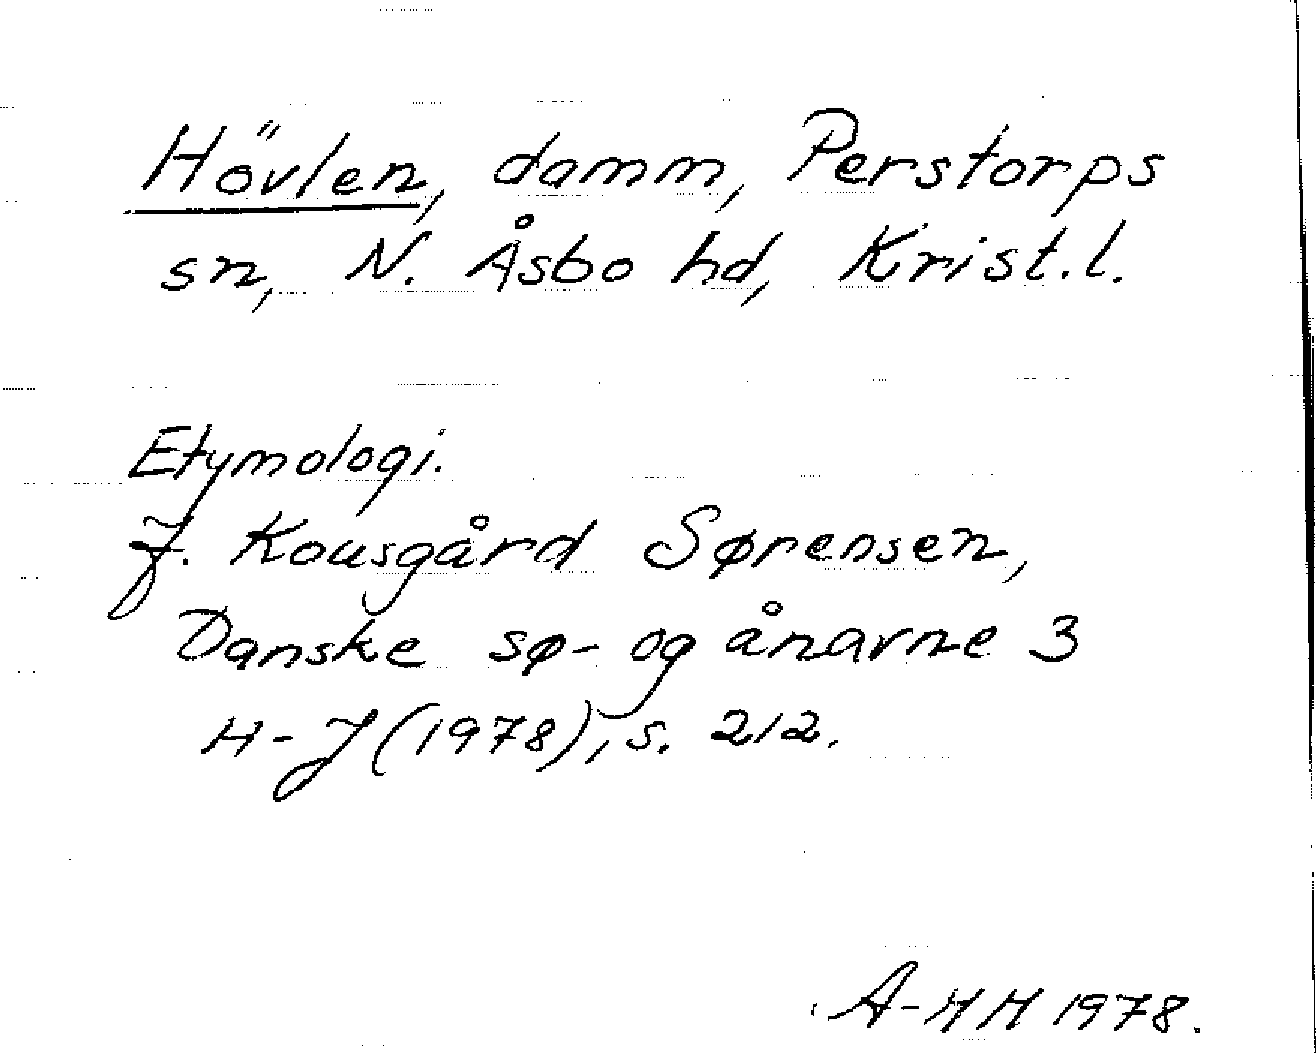 Hövlen, damm, Perstorps
sn, N. Åsbo hd, Krist.l.
Etymologi.
J. Kousgård Sørensen,
Danske sø- og ånavne 3
H-J (1978), s. 212.
A-HH 1978.